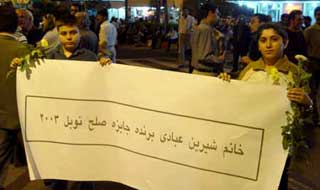 خانم شیرین عبادی برنده جایزه صلح نوبل ۲۰۰۳